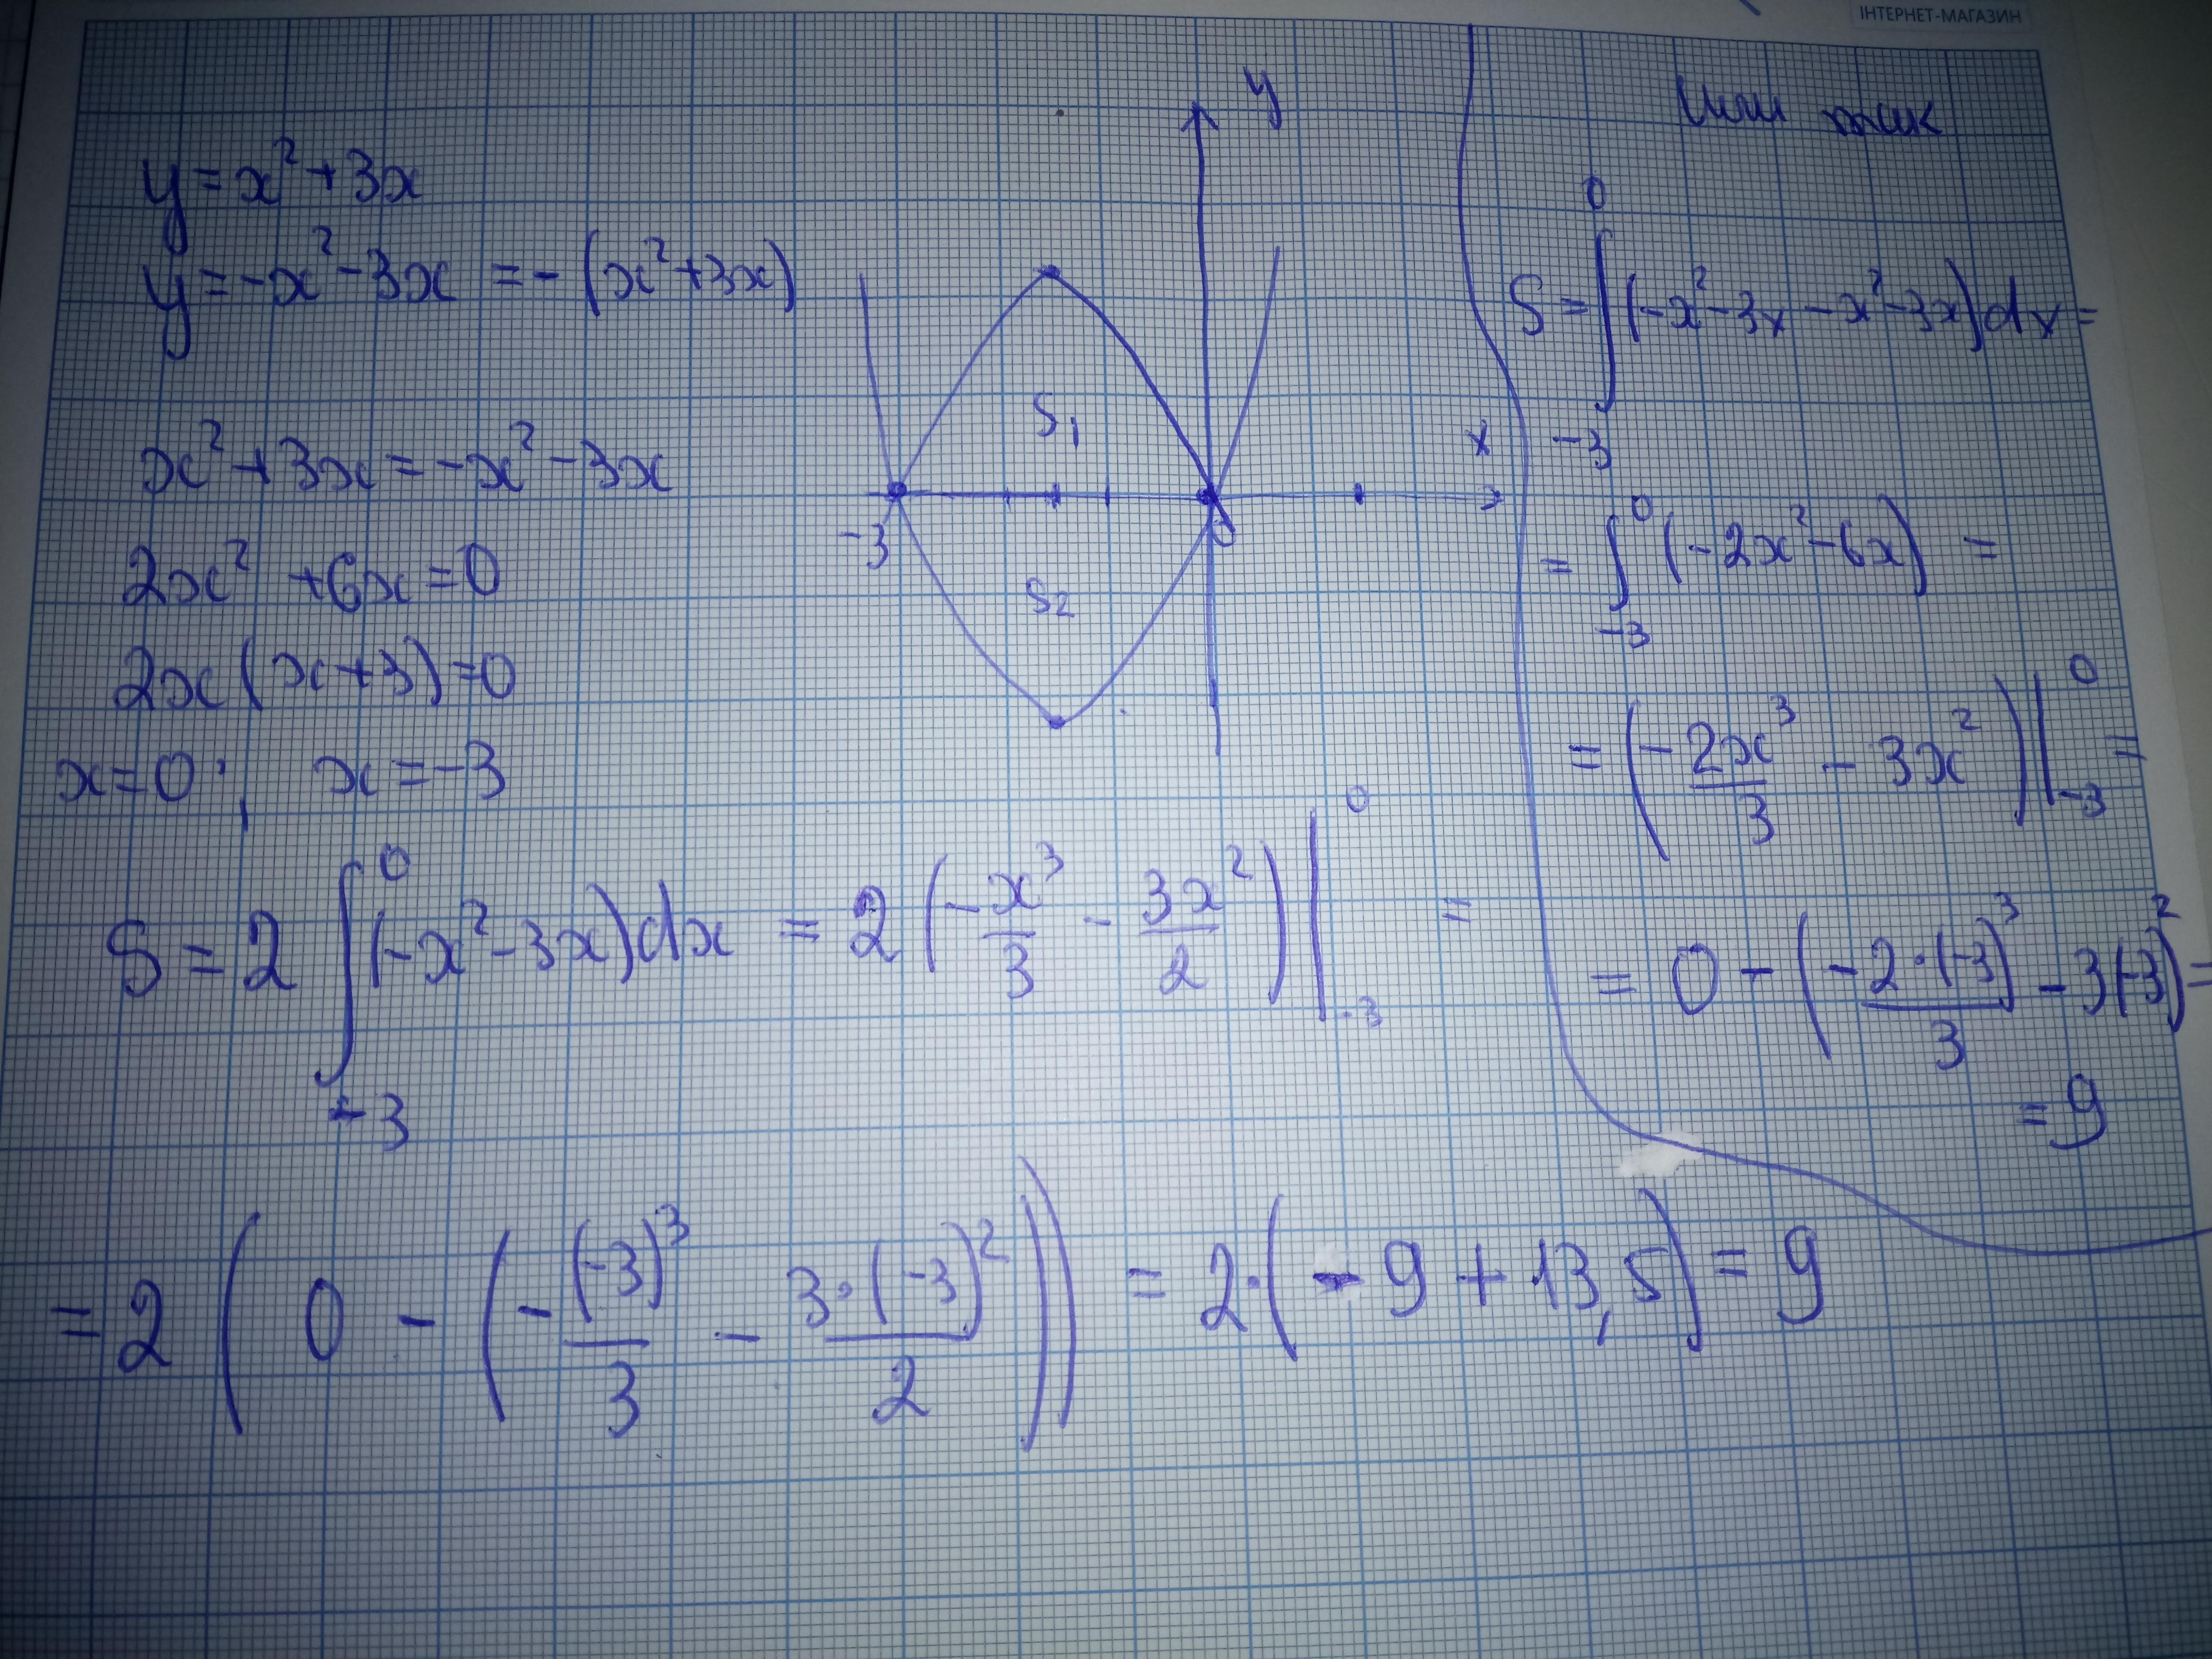 ІНТЕРНЕТ-МАГАЗИН
y = x² + 3x
y = -x² - 3x = -(x² + 3x)
x² + 3x = -x² - 3x
2x² + 6x = 0
2x(x+3) = 0
x = 0; x = -3
y
S₁
x
-3
0
S₂
S = 2 ∫₋₃⁰ (-x² - 3x)dx = 2(-x³/3 - 3x²/2)|₋₃⁰ =
= 2(0 - (-(-3)³/3 - 3·(-3)²/2)) = 2·(-9 + 13,5) = 9
Или так
S = ∫₋₃⁰ (-x² - 3x - x² - 3x)dx =
= ∫₋₃⁰ (-2x² - 6x) =
= (-2x³/3 - 3x²)|₋₃⁰ =
= 0 - (-2·(-3)³/3 - 3(-3)²) =
= 9